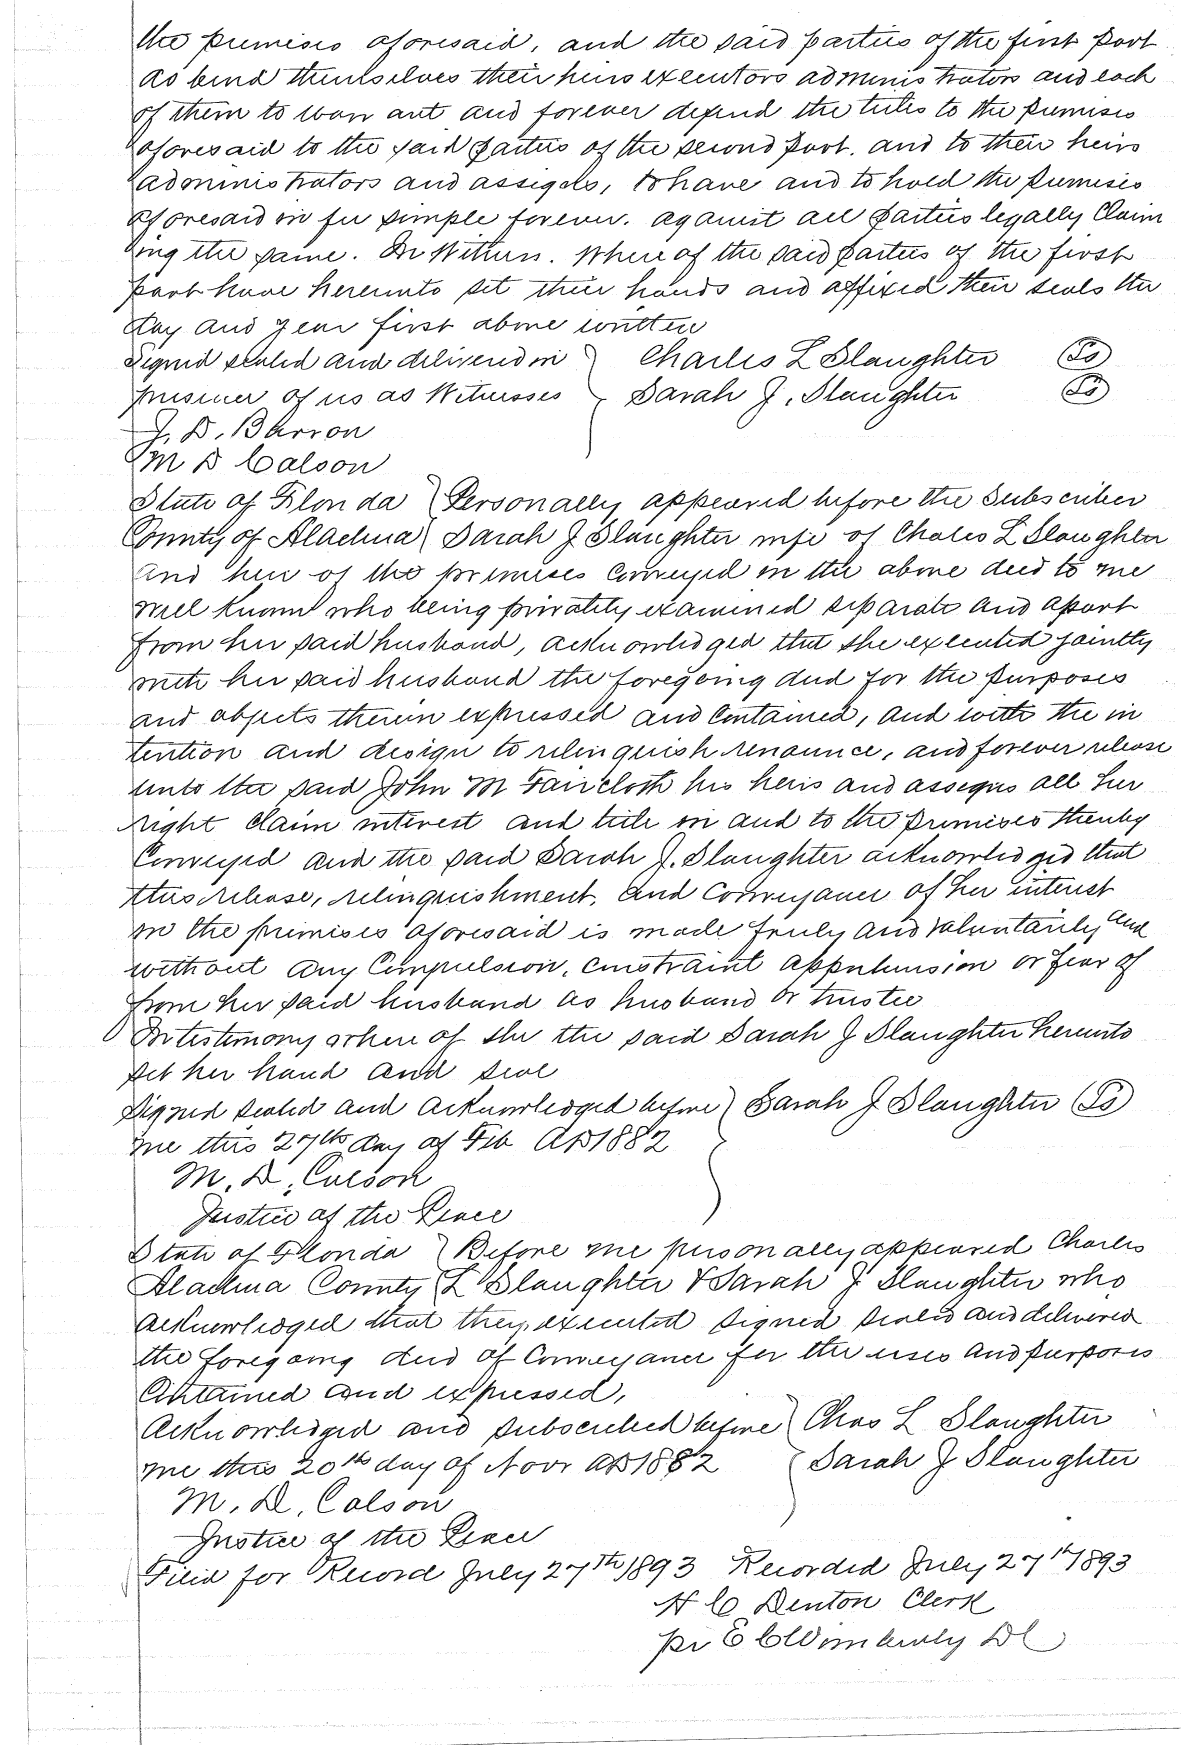 the premises aforesaid, and the said parties of the first part
do bind themselves their heirs executors administrators and each
of them to warr ant and forever defend the titles to the premises
aforesaid to the said parties of the second part. and to their heirs
administrators and assigns, to have and to hold the premises
aforesaid in fee simple forever. against all parties legally Claim
ing the same. In Witness. Where of the said parties of the first
part have hereunto set their hands and affixed their seals the
day and year first above written
Signed sealed and delivered in } Charles L Slaughter (LS)
presence of us as Witnesses } Sarah J. Slaughter (LS)
J. D. Barron
M D Colson
State of Florida } Personally appeared before the Subscriber
County of Alachua } Sarah J Slaughter wife of Charles L Slaughter
and heir of the premises conveyed in the above deed to me
well known who being privately examined separate and apart
from her said husband, acknowledged that she executed jointly
with her said husband the foregoing deed for the purposes
and objects therein expressed and contained, and with the in
tention and design to relinquish renounce, and forever release
unto the said John M Faircloth his heirs and assigns all her
right claim interest and title in and to the premises thereby
Conveyed and the said Sarah J. Slaughter acknowledged that
this release, relinquishment, and conveyance of her interest
in the premises aforesaid is made truly and voluntarily and
without any Compulsion, constraint apprehension or fear of
from her said husband as husband or trustee
In testimony where of she the said Sarah J Slaughter hereunto
set her hand and seal
Signed sealed and acknowledged before } Sarah J Slaughter (LS)
me this 27th day of Feb AD 1882
M. D. Colson
Justice of the Peace
State of Florida } Before me personally appeared Charles
Alachua County } L Slaughter & Sarah J Slaughter who
acknowledged that they executed signed sealed and delivered
the foregoing deed of Conveyance for the uses and purposes
Contained and expressed,
Acknowledged and subscribed before } Chas L Slaughter
me this 20th day of Novr AD 1882 } Sarah J Slaughter
M. D. Colson
Justice of the Peace
Filed for Record July 27th 1893 Recorded July 27th 1893
H C Denton Clerk
pr E C Wimberly DC